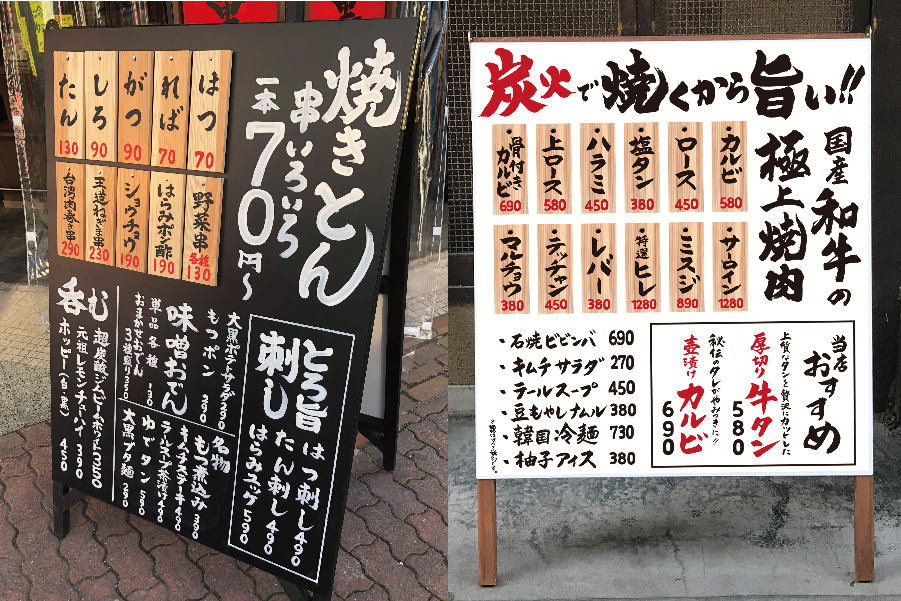 焼きとん
串いろいろ
一本70円〜
はつ 70
れば 70
がつ 90
しろ 90
たん 130
野菜串 各種 130
はらみポン酢 190
ショウチョウ 190
王道ねぎま串 230
台湾肉巻き串 290
とろ旨
刺し
はつ刺し 490
たん刺し 490
はらみユッケ 590
大黒ポテトサラダ 390
もつポン 290
味噌おでん
単品各種 130
おまかせおでん
3種盛り 350
名物
もつ煮込み 390
キムチステーキ 490
テールスープ茶漬け 490
ゆでタン 590
大黒ブタ麺 290
呑む
超炭酸ジムビームハイボール 250
元祖レモンチューハイ 390
ホッピー(白・黒) 450
炭火で焼くから旨い!!
国産和牛の
極上焼肉
カルビ 580
ロース 450
塩タン 380
ハラミ 450
上ロース 580
骨付きカルビ 690
サーロイン 1280
ミスジ 890
特選ヒレ 1280
レバー 380
テッチャン 450
マルチョウ 380
・石焼ビビンバ 690
・キムチサラダ 270
・テールスープ 450
・豆もやしナムル 380
・韓国冷麺 730
・柚子アイス 380
当店
おすすめ
上質なタンを贅沢にカットした
厚切り牛タン 580
秘伝のタレがやみつきに!!
壺漬けカルビ 690